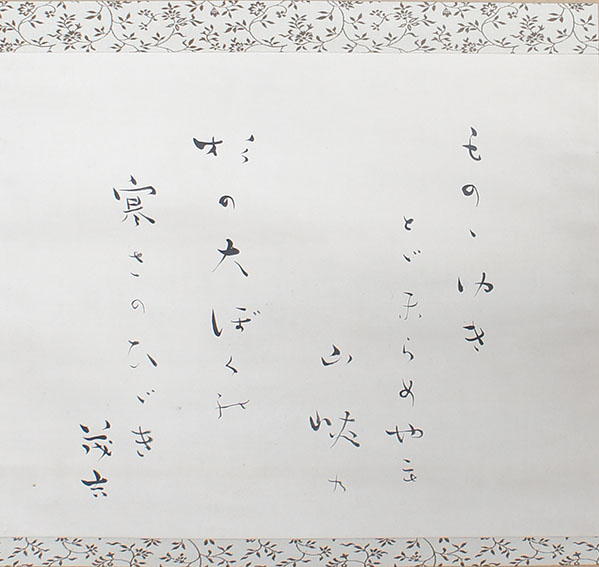 ものゝゆき
とゞまらめやも
山峡の
杉の大ぼくの
寒さのひゞき
茂吉